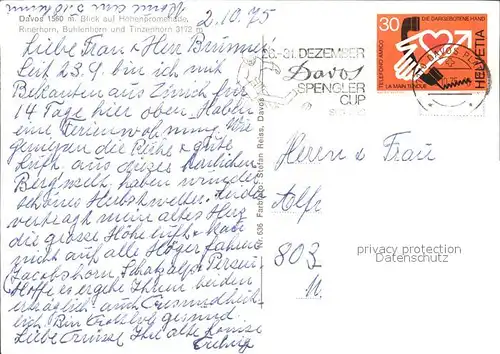 Davos 1560 m. Blick auf Hohenpromenade,
Rinerhorn, Bühlenhorn und Tinzenhorn 3172 m
2.10.75
Liebe Frau & Herr Brunner
Seit 23.9. bin ich mit
Bekannten aus Zürich für
14 Tage hier oben. Haben
eine Ferienwohnung. Wir
geniessen die Ruhe & gute
Luft, aus dieser herrlichen
Bergwelt, haben wunder
schönes Herbstwetter. Leider
vertragt mein altes Herz
die grosse Höhe
mich auf alle fahren
Jacobshorn Schatzalp Parsenn
Hoffe es ergehe Ihnen beiden
erträglich auch Gesundheit
lich. Bin gesund.
Liebe Grüsse Ihre alte Louise
Nr. 636 Farbfoto: Stefan Reiss, Davos
26.-31. DEZEMBER
Davos
SPENGLER
CUP
30
DIE DARGEBOTENE HAND
TELEFONO AMICO
LA MAIN TENDUE
HELVETIA
DAVOS PL
Herrn & Frau
Alfr
803
privacy protection
Datenschutz